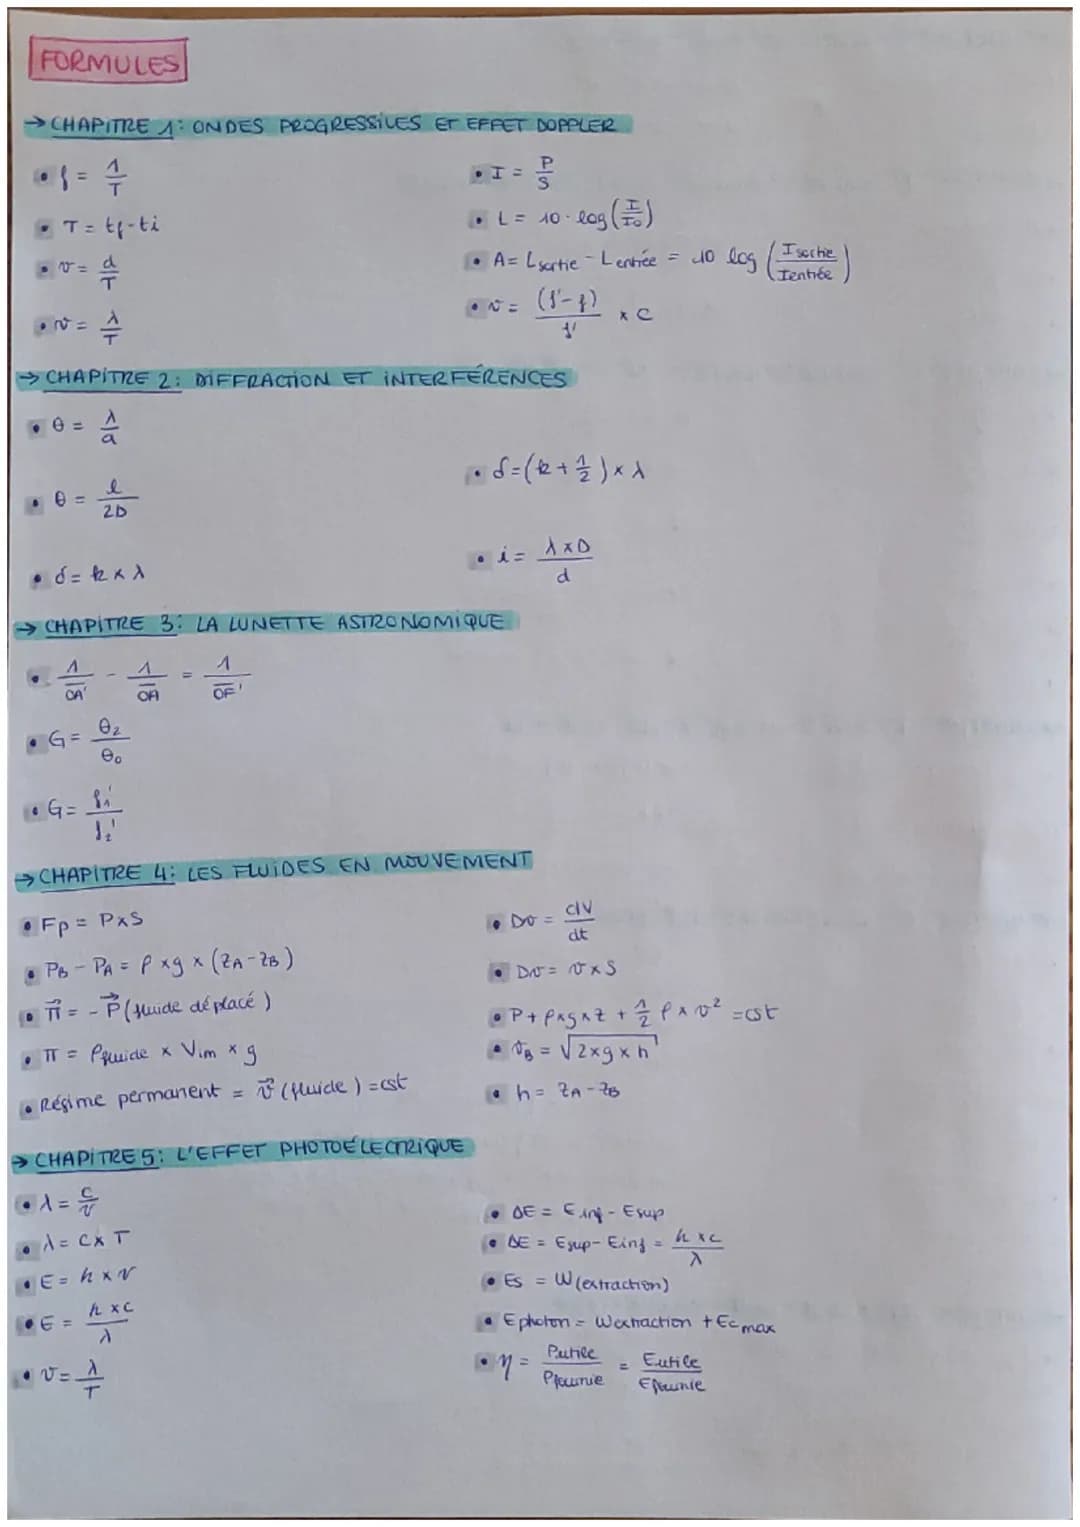 FORMULES
→ CHAPITRE 1: ONDES PROGRESSIVES ET EFFET DOPPLER
• f = 1/T
• T = tf - ti
• v = d/T
• v = λ/T
• I = P/S
• L = 10 · log(I/I₀)
• A = Lsortie - Lentrée = 10 log (Isortie/Ientrée)
• v = (f'-f)/f' × C
→ CHAPITRE 2: DIFFRACTION ET INTERFÉRENCES
• θ = λ/a
• θ = l/2D
• δ = k × λ
• δ = (k + 1/2) × λ
• i = λ×D/d
→ CHAPITRE 3: LA LUNETTE ASTRONOMIQUE
• 1/OA' - 1/OA = 1/OF'
• G = θ₂/θ₀
• G = f₁'/f₂'
→ CHAPITRE 4: LES FLUIDES EN MOUVEMENT
• Fp = P×S
• PB - PA = ρ × g × (zA - zB)
• π⃗ = - P⃗ (fluide déplacé)
• π = ρfluide × Vim × g
• Régime permanent = v⃗ (fluide) = cst
• Dv = dV/dt
• Dv = v × S
• P + ρ×g×z + 1/2 ρ × v² = cst
• vB = √2×g×h
• h = zA - zB
→ CHAPITRE 5: L'EFFET PHOTOÉLECTRIQUE
• λ = c/ν
• λ = C × T
• E = h × ν
• E = h×c/λ
• v = λ/T
• ΔE = Einf - Esup
• ΔE = Esup - Einf = h×c/λ
• Es = W(extraction)
• Ephoton = Wextraction + Ecmax
• η = Putile/Pfournie = Eutile/Efournie